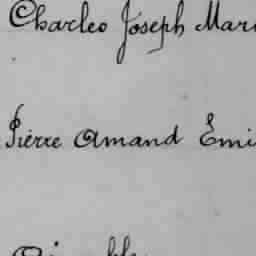 Charles Joseph Mari
Pierre Amand Emi